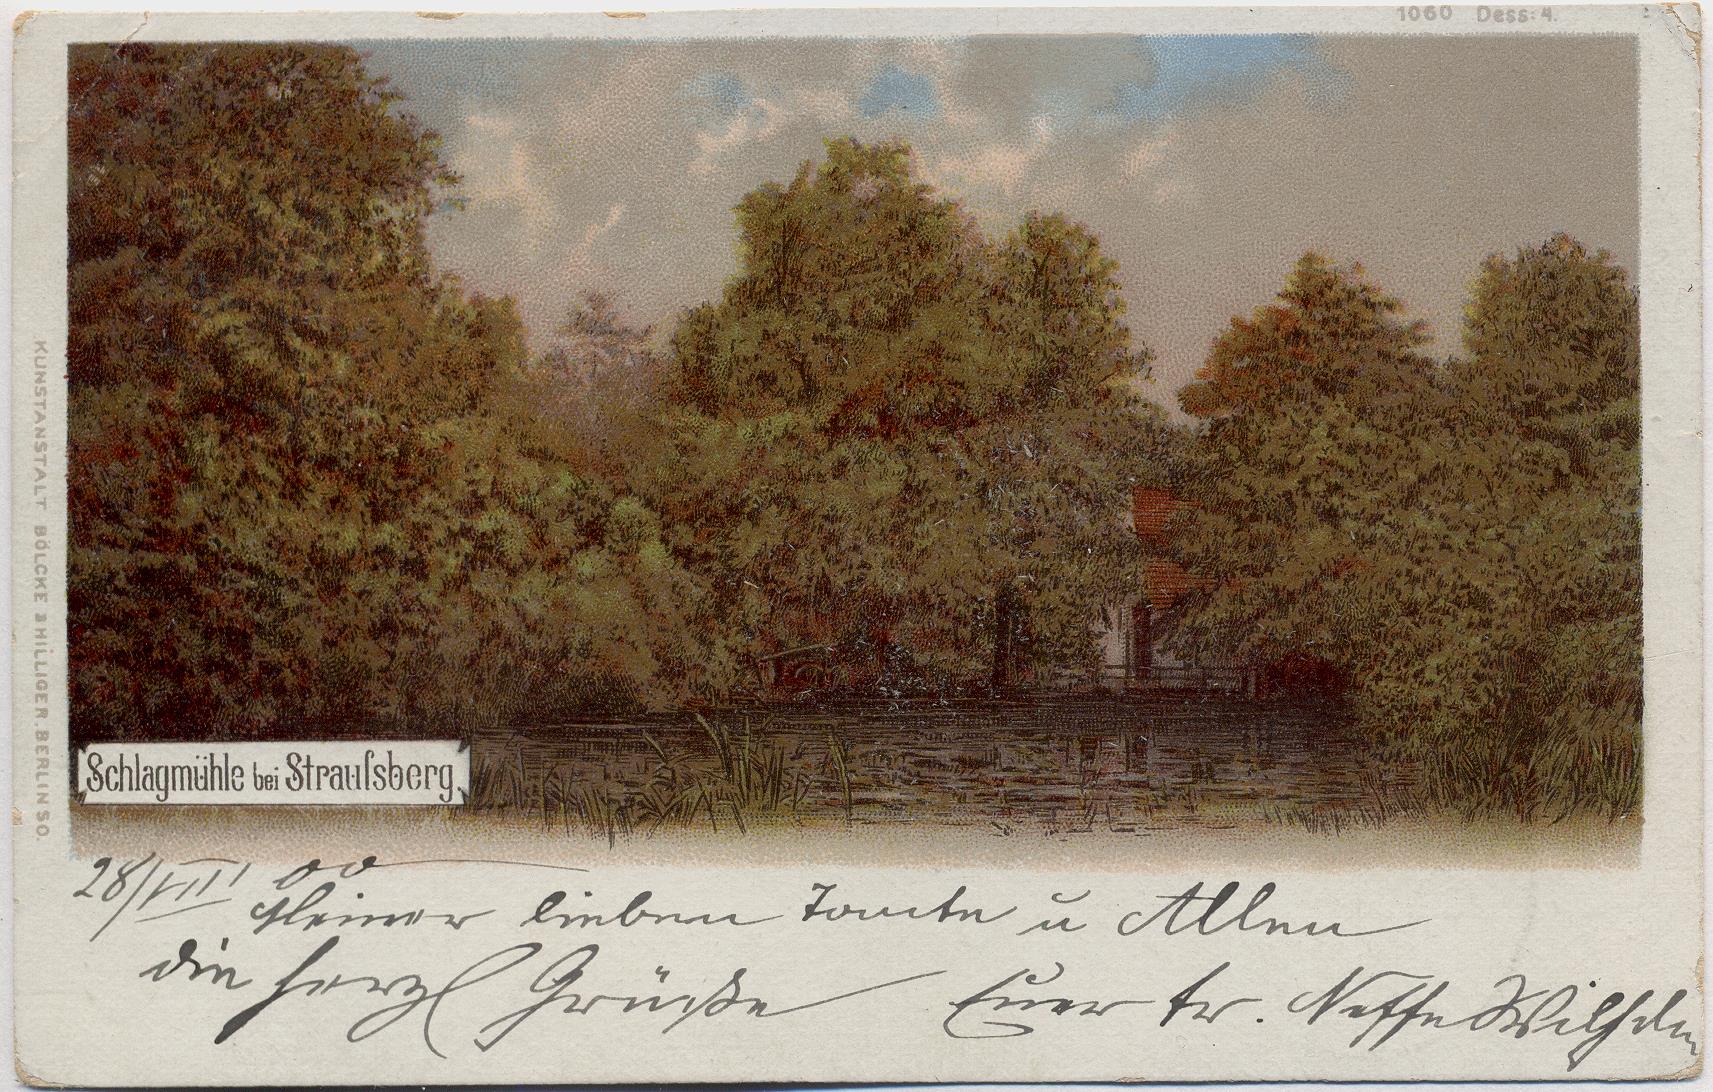 1060 Dess: 4.
KUNSTANSTALT BÖLCKE & HILLIGER. BERLIN SO.
Schlagmühle bei Strauſsberg.
28/VIII 00
Meiner lieben Tante u Allen
die herzl Grüße Euer tr. Neffe Wilhelm